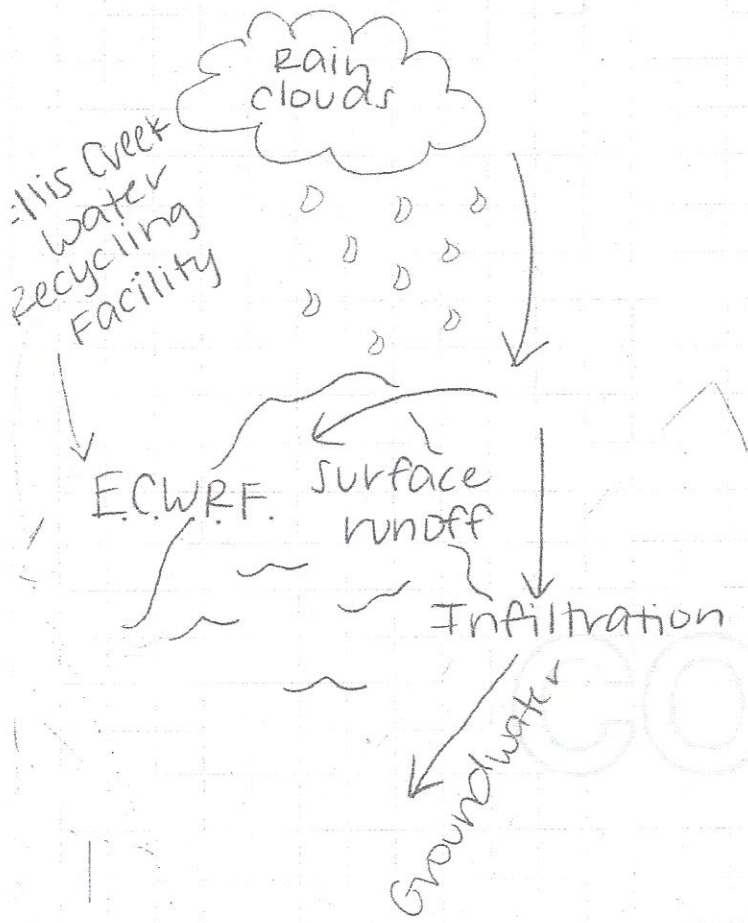 Rain
clouds
Ellis Creek
Water
Recycling
Facility
E.C.W.R.F.
surface
runoff
Infiltration
Groundwater
CO